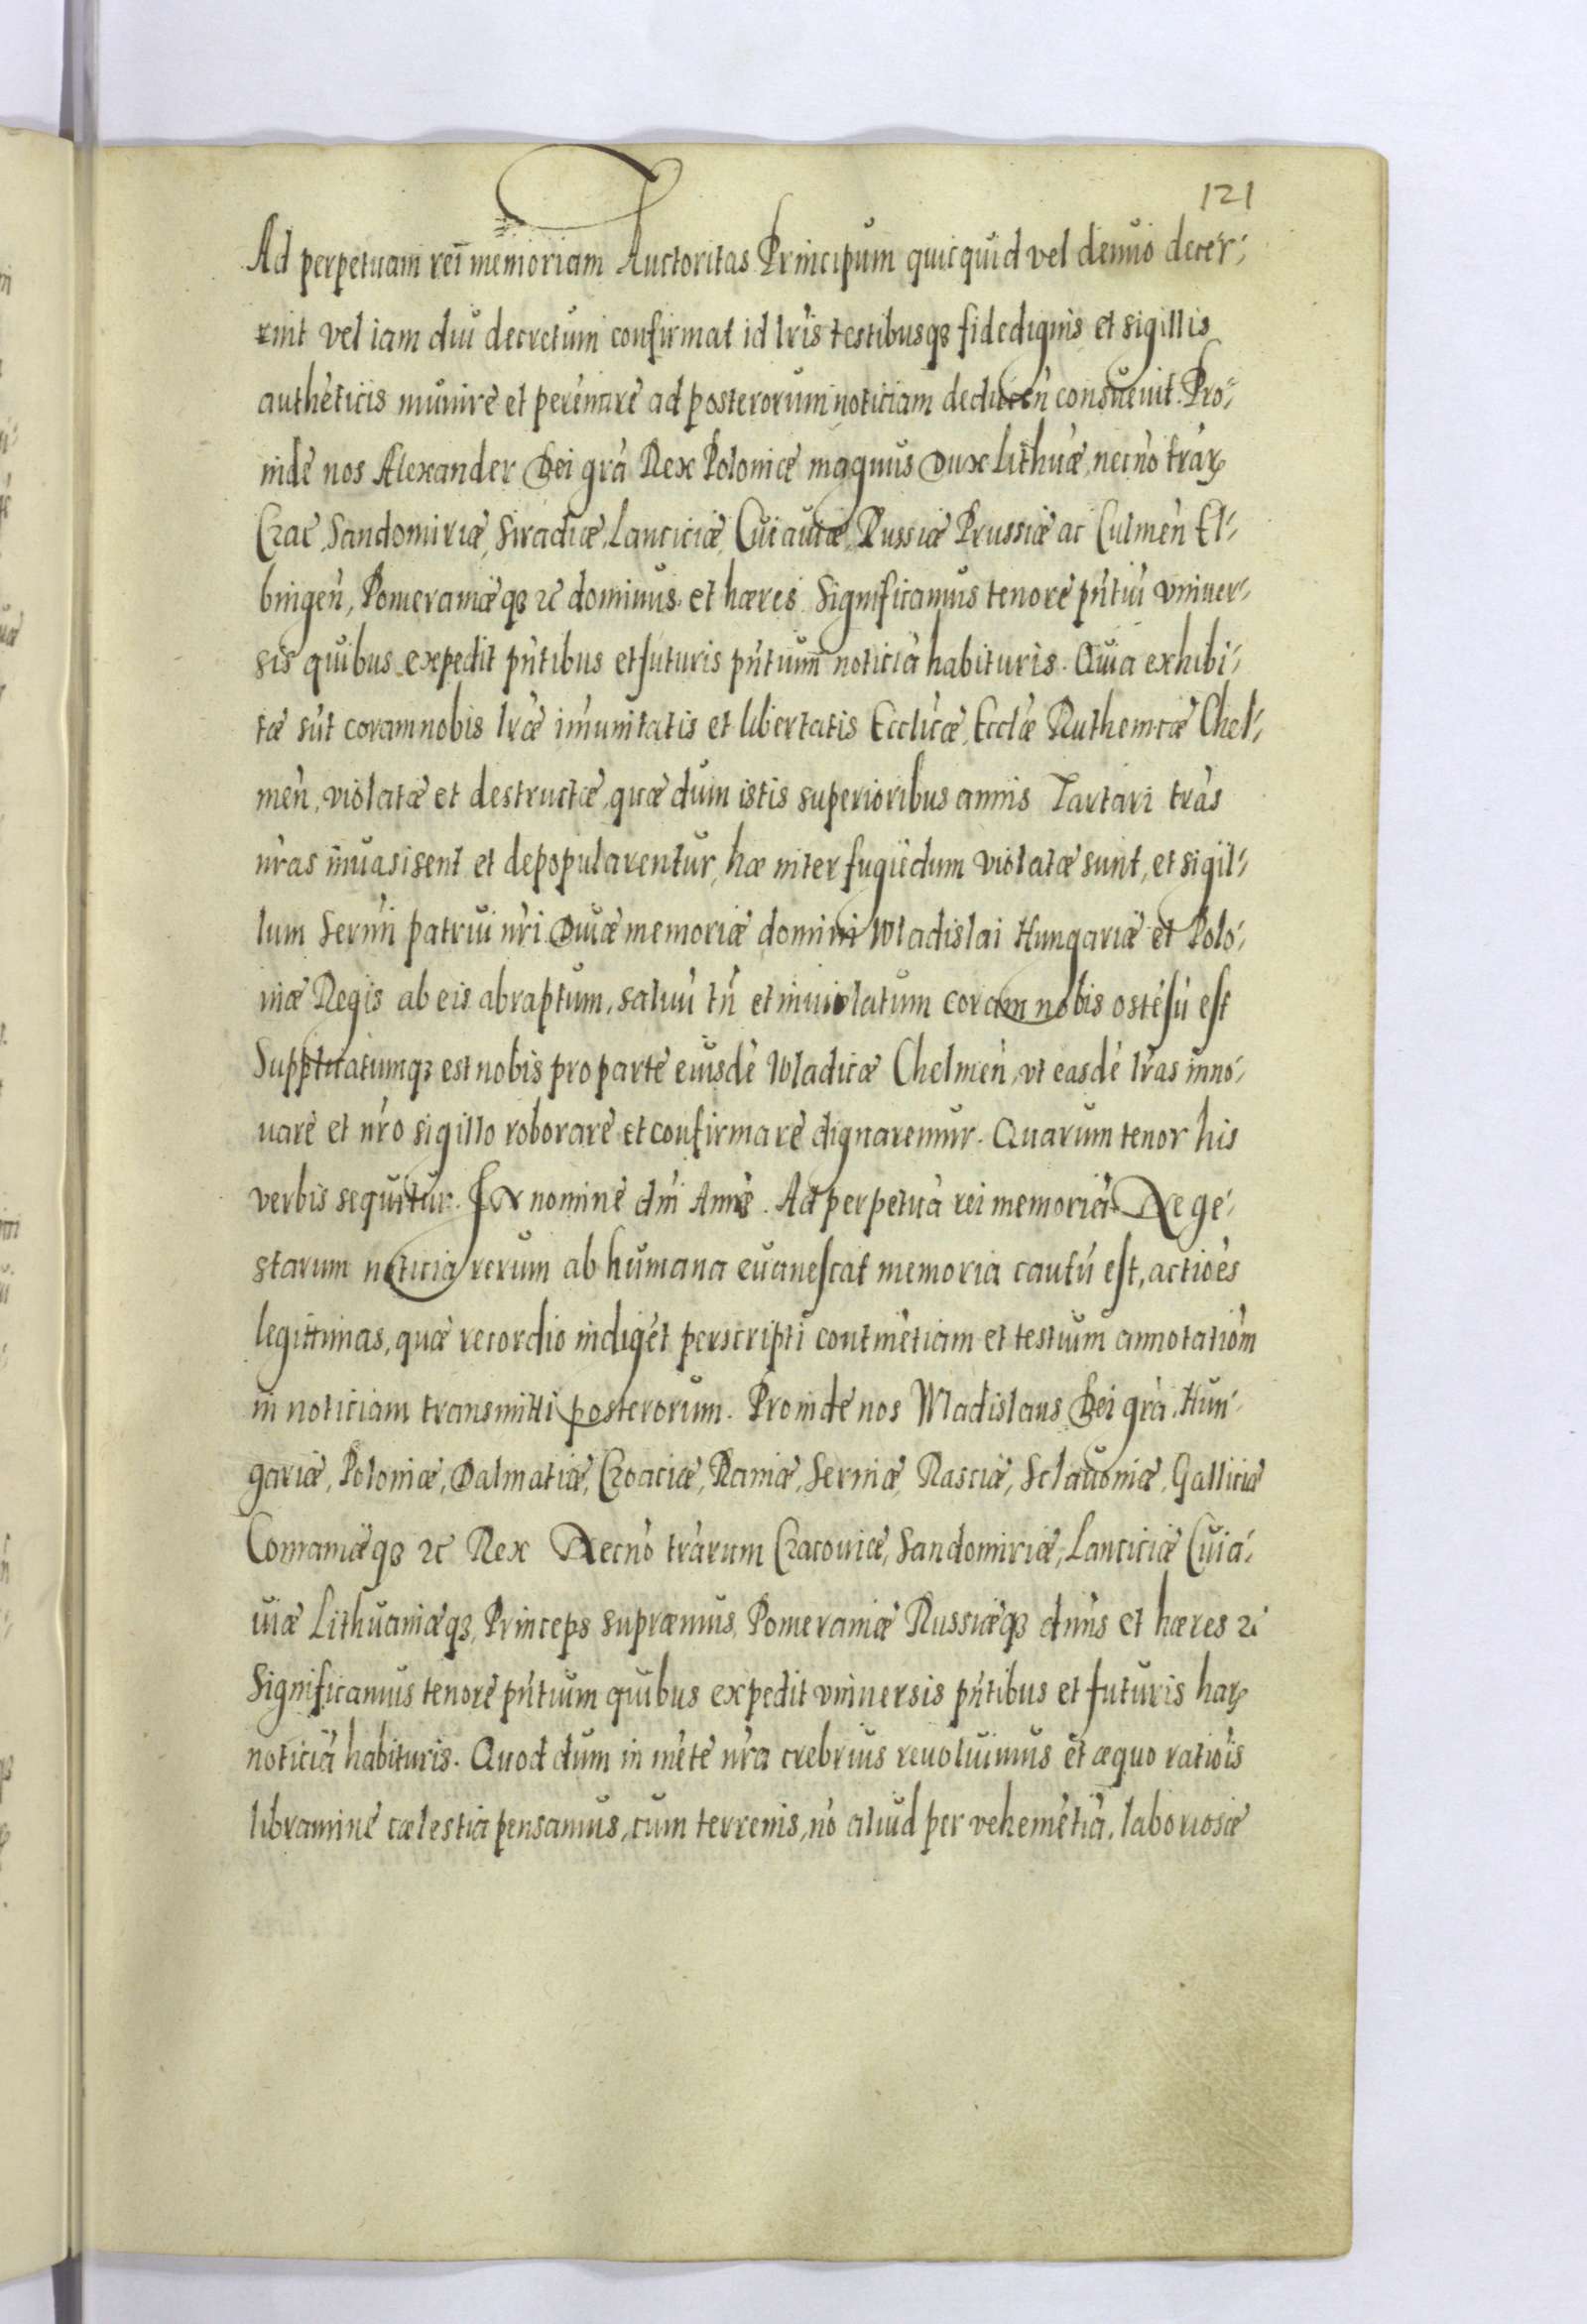 121
Ad perpetuam rei memoriam Auctoritas Principum quicquid vel denuo decer-
nit vel iam diu decretum confirmat id lr̃is testibusq3 fidedignis et sigillis
authẽticis munire et perẽnare ad posterorum noticiam deducẽn consueuit. Pro-
inde nos Alexander Dei grã Rex Poloniæ magnus Dux Lithuæ, necnõ trãrꝝ
Crac, Sandomiriæ, Siradiæ, Lanciciæ, Cuiauiæ, Russiæ Prussiæ ac Culmeñ El-
bingeñ, Pomeraniæq3 ꝛc dominus et hæres Significamus tenore pñtiũ vniuer-
sis quibus expedit pñtibus et futuris pñtium noticiã habituris. Quia exhibi-
tæ sũt coram nobis lr̃æ imũnitatis et libertatis Eccliĉæ, Eccl̃æ Ruthenicæ Chel-
meñ, violatæ et destructæ, quæ dum istis superioribus annis Tartari trãs
nr̃as inuasisent et depopularentur, hæ inter fugiẽdum violatæ sunt, et sigil-
lum Serm̃i patrui nr̃i Diuæ memoriæ domini Wladislai Hungariæ et Polo-
niæ Regis ab eis abraptum, saluũ tñ et inuiolatum coram nobis ostẽsũ est
Supplicatumq3 est nobis pro parte eiusdẽ Wladicæ Chelmeñ, vt easdẽ lr̃as inno-
uare et nr̃o sigillo roborare et confirmare dignaremur. Quarum tenor his
verbis sequitur. IN nomine dñi Amẽ. Ad perpetuã rei memoriã Ne ge-
starum noticia rerum ab humana euanescat memoria cautũ est, actiões
legittimas, quæ recordio indigẽt perscripti continẽtiam et testium annotatiõm
in noticiam transmitti posterorum. Proinde nos Wladislaus Dei grã, Hun-
gariæ, Poloniæ, Dalmatiæ, Croaciæ, Ramæ, Serniæ, Rasciæ, Sclauoniæ, Galliciæ
Comaniæq3 ꝛc Rex Necnõ trãrum Cracouiæ, Sandomiriæ, Lanciciæ Cuia-
uiæ Lithuaniæq3, Princeps supræmus, Pomeraniæ Russiæq3 dñns et hæres ꝛc
Significamus tenore pñtium quibus expedit vniuersis pñtibus et futuris harꝝ
noticiã habituris. Quod dum in mẽte nr̃a crebrius reuoluimus et æquo ratiõis
libramine cælestia pensamus, cum terrenis, nõ aliud per vehemẽtiã, laboriosæ